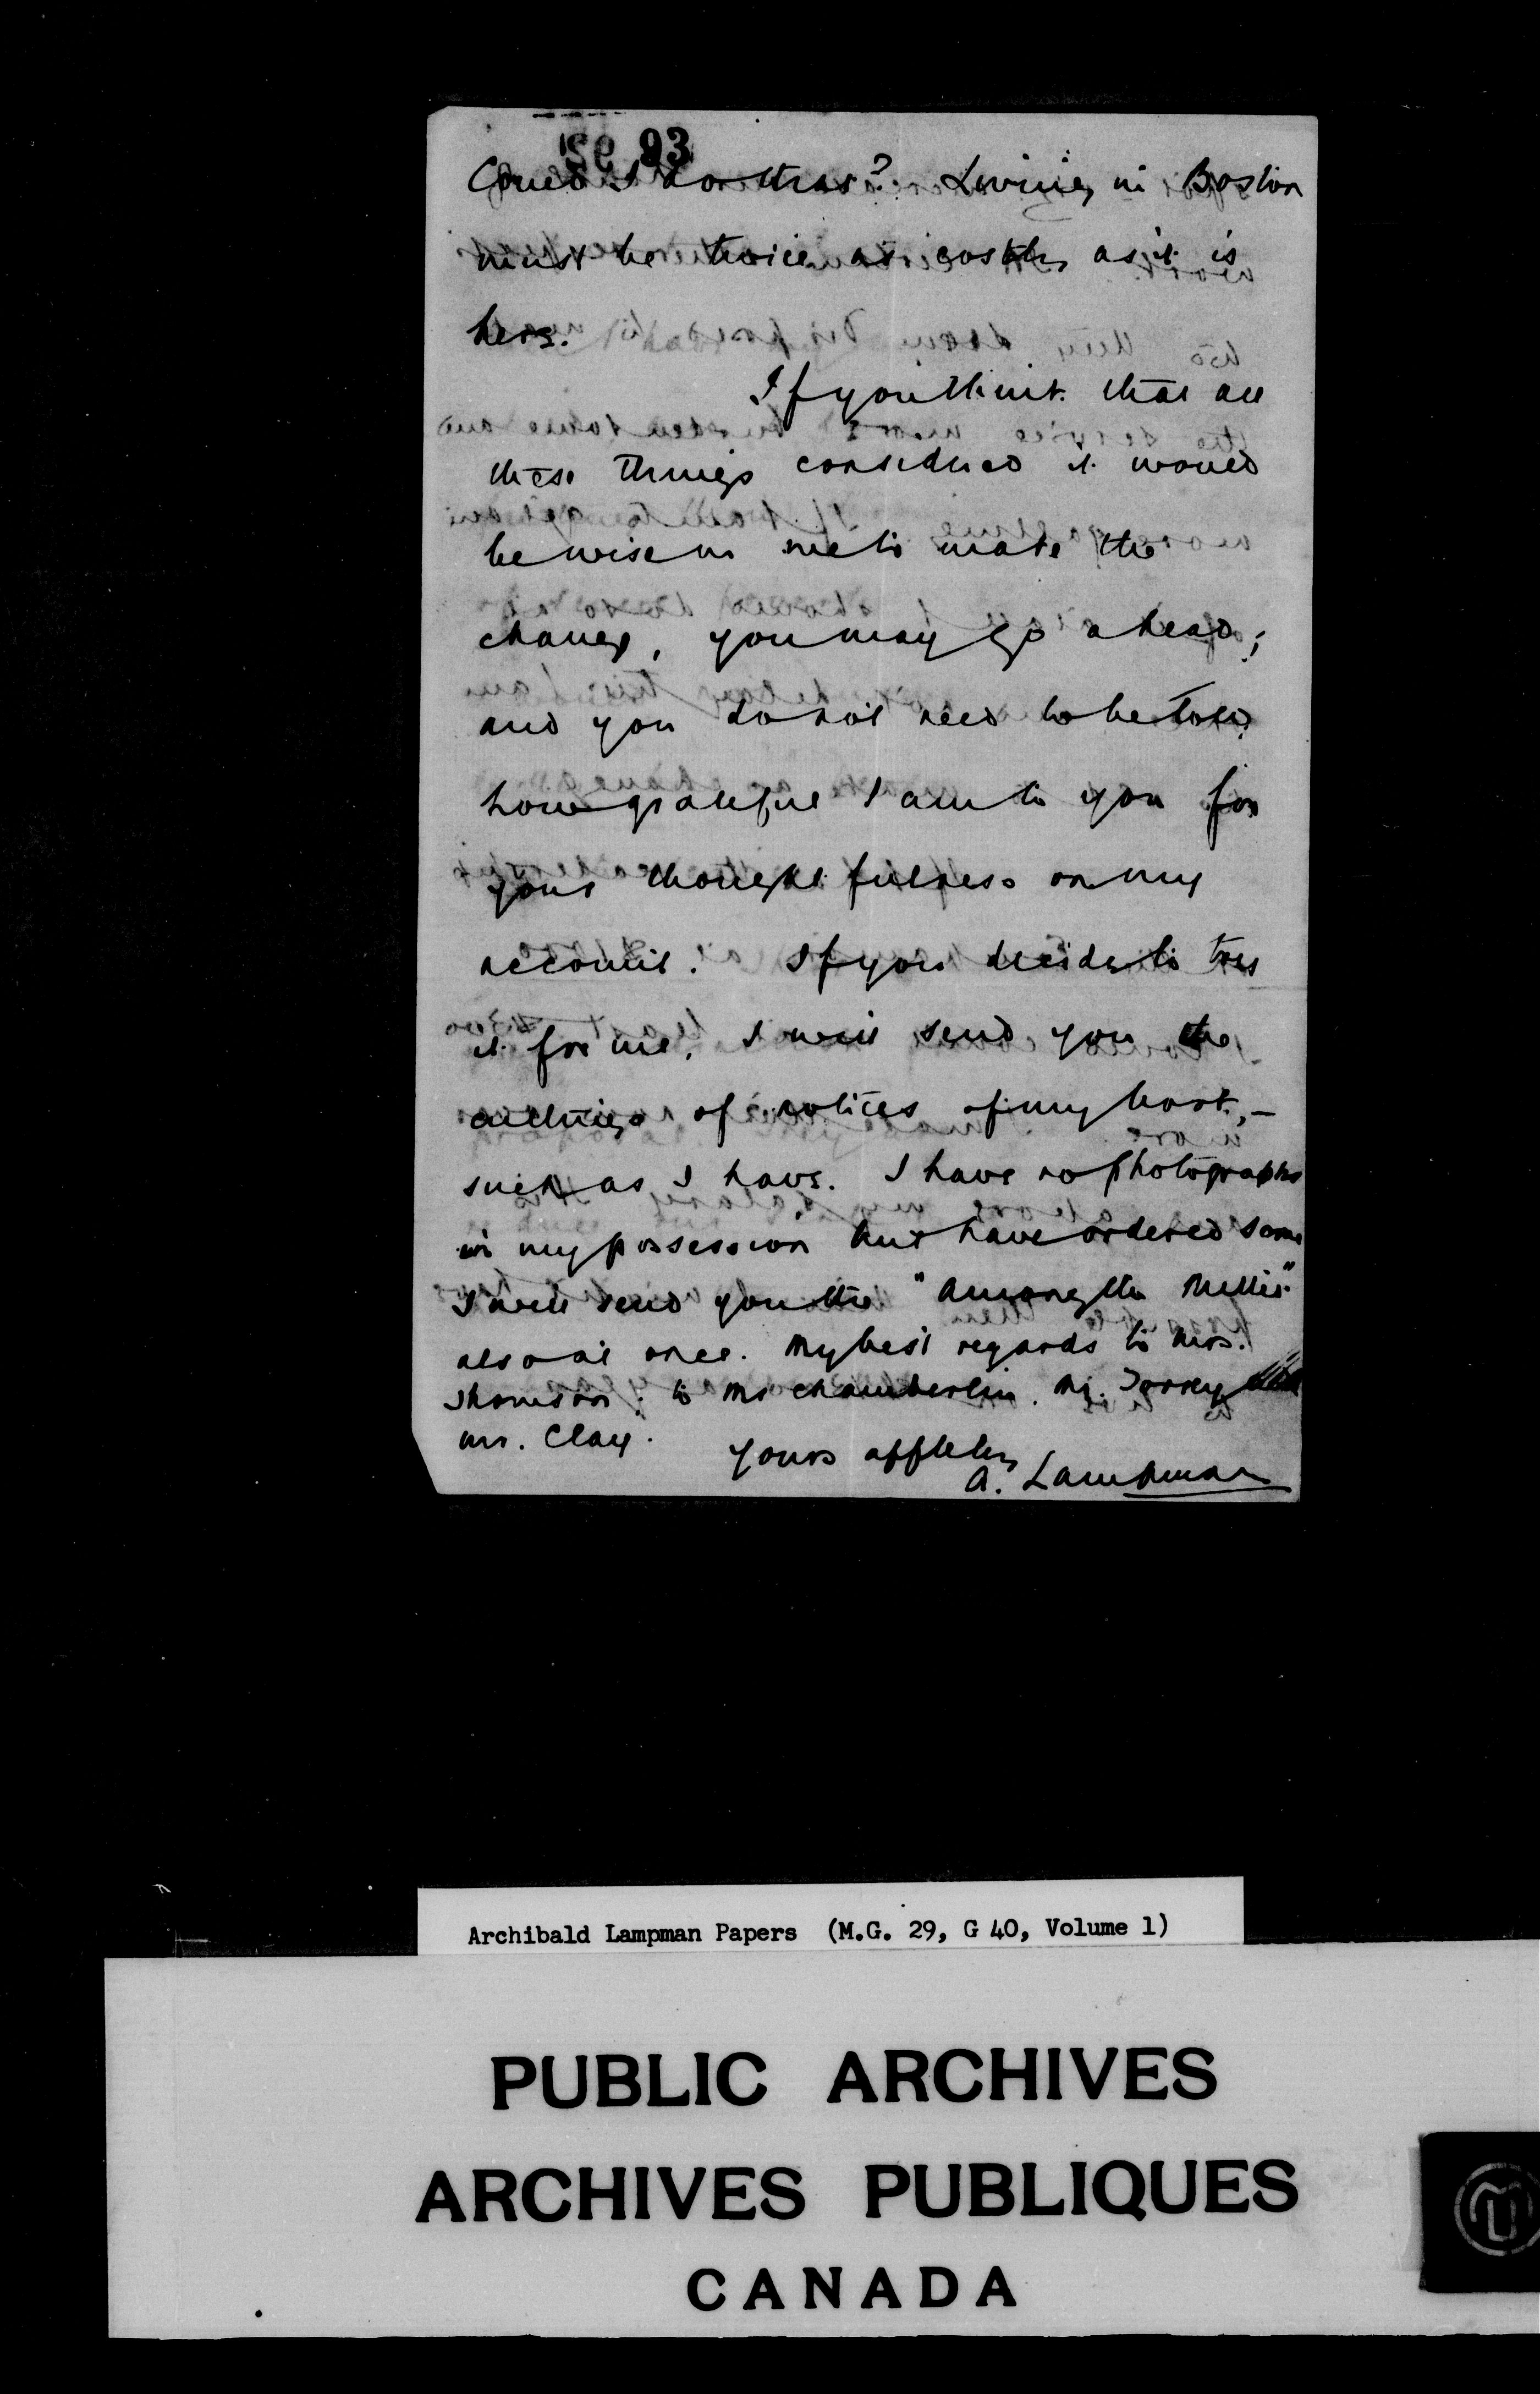 93
Could I do that? Living in Boston
must be twice as costly as it is
here.
If you think that all
these things considered it would
be wise in me to make the
change, you may go ahead;
and you do not need to be told
how grateful I am to you for
your thoughtfulness on my
account. If you decide to try
it for me, I will send you the
cuttings of notices of my book, –
such as I have. I have no photographs
in my possession but have ordered some
I will send you the "Among the Millet"
also at once. My best regards to Mrs.
Thomson. to Mr Chamberlin. Mr.
Mr. Clay.
Yours affctely
A. Lampman
Archibald Lampman Papers (M.G. 29, G 40, Volume 1)
PUBLIC ARCHIVES
ARCHIVES PUBLIQUES
CANADA